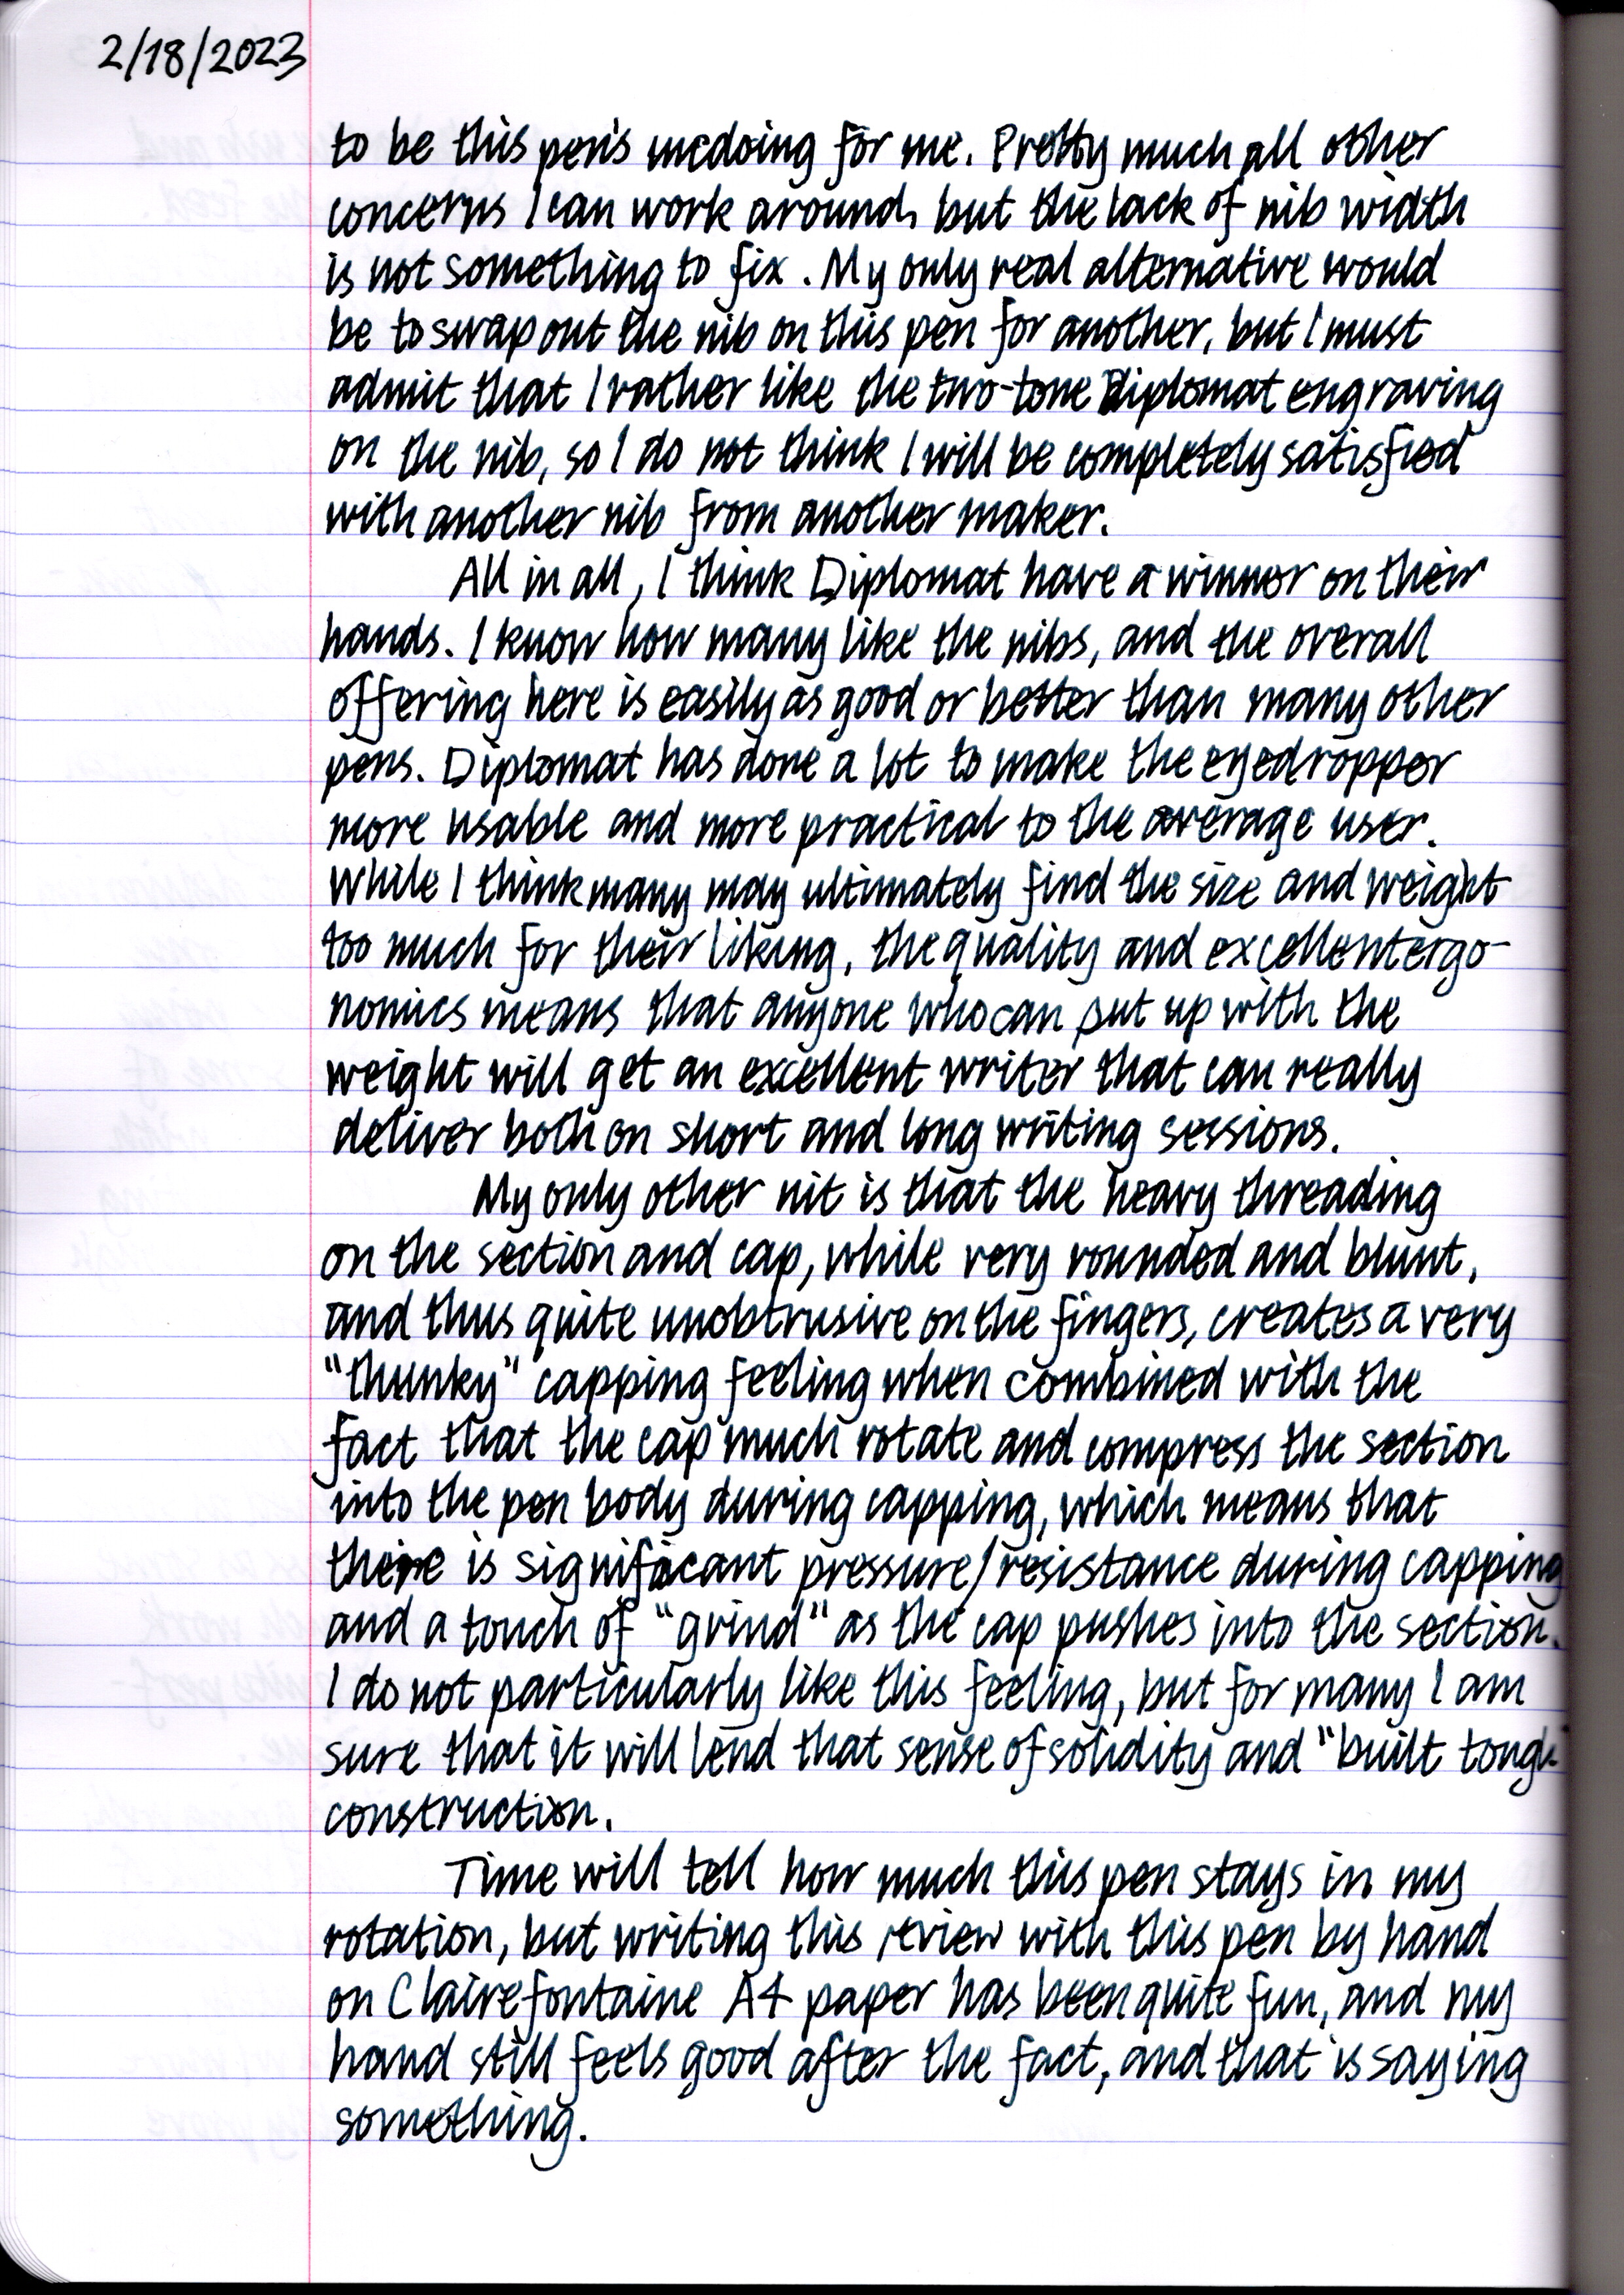 2/18/2023
to be this pen's undoing for me. Pretty much all other
concerns I can work around, but the lack of nib width
is not something to fix. My only real alternative would
be to swap out the nib on this pen for another, but I must
admit that I rather like the two-tone Diplomat engraving
on the nib, so I do not think I will be completely satisfied
with another nib from another maker.
All in all, I think Diplomat have a winner on their
hands. I know how many like the nibs, and the overall
offering here is easily as good or better than many other
pens. Diplomat has done a lot to make the eyedropper
more usable and more practical to the average user.
While I think many may ultimately find the size and weight
too much for their liking, the quality and excellent ergo-
nomics means that anyone who can put up with the
weight will get an excellent writer that can really
deliver both on short and long writing sessions.
My only other nit is that the heavy threading
on the section and cap, while very rounded and blunt,
and thus quite unobtrusive on the fingers, creates a very
"thunky" capping feeling when combined with the
fact that the cap much rotate and compress the section
into the pen body during capping, which means that
there is significant pressure/resistance during capping
and a touch of "grind" as the cap pushes into the section.
I do not particularly like this feeling, but for many I am
sure that it will lend that sense of solidity and "built tough
construction.
Time will tell how much this pen stays in my
rotation, but writing this review with this pen by hand
on Clairefontaine A4 paper has been quite fun, and my
hand still feels good after the fact, and that is saying
something.